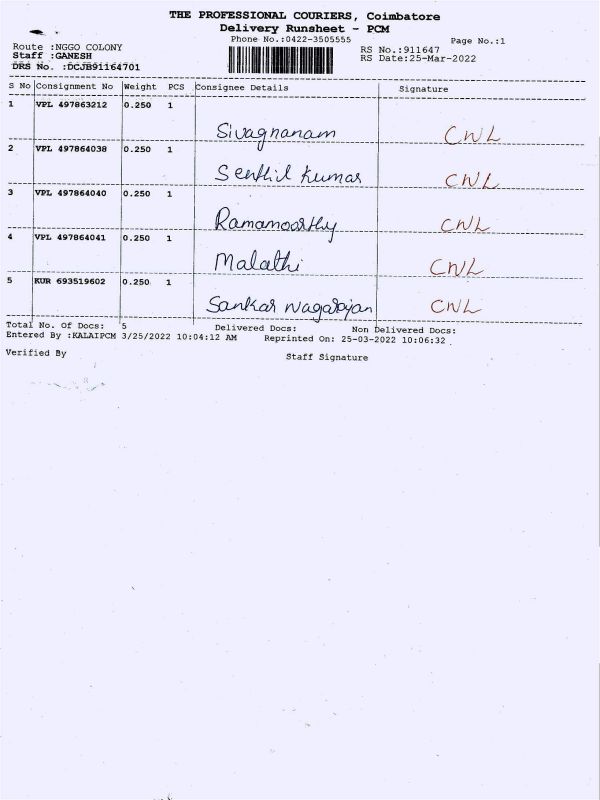 THE PROFESSIONAL COURIERS, Coimbatore
Delivery Runsheet - PCM
Phone No.:0422-3505555 Page No.:1
Route :NGGO COLONY RS No.:911647
Staff :GANESH RS Date:25-Mar-2022
DRS No. :DCJB91164701
S No Consignment No Weight PCS Consignee Details Signature
1 VPL 497863212 0.250 1
Sivagnanam CNL
2 VPL 497864038 0.250 1
Senthil kumar CNL
3 VPL 497864040 0.250 1
Ramamoorthy CNL
4 VPL 497864041 0.250 1
Malathi CNL
5 KUR 693519602 0.250 1
Sankar Nagarajan CNL
Total No. Of Docs: 5 Delivered Docs: Non Delivered Docs:
Entered By :KALAIPCM 3/25/2022 10:04:12 AM Reprinted On: 25-03-2022 10:06:32
Verified By Staff Signature